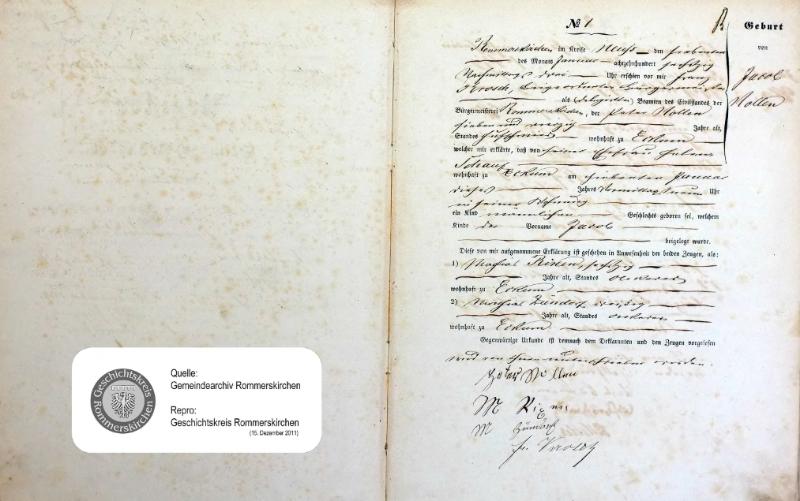 № 1
Geburt
von
Jacob
Nollen
Rommerskirchen im Kreise Neuß den siebenten
des Monats Januar achtzehnhundert sechszig
Nachmittags drei Uhr erschien vor mir Franz
Bürgermeister
als (delegirten) Beamten des Civilstandes der
Bürgermeisterei Rommerskirchen, der Peter Nollen
sieben und vierzig Jahre alt,
Standes wohnhaft zu Eckum
welcher mir erklärte, daß von seiner Ehefrau Helena
wohnhaft zu Eckum am siebenten Januar
dieses Jahres Vormittags neun Uhr
in seiner Wohnung
ein Kind männlichen Geschlechts geboren sei, welchem
Kinde der Vorname Jacob
beigelegt wurde.
Diese von mir aufgenommene Erklärung ist geschehen in Anwesenheit der beiden Zeugen, als:
1) sechszig
Jahre alt, Standes Ackerer
wohnhaft zu Eckum
2) Zündorf, dreißig
Jahre alt, Standes Ackerer
wohnhaft zu Eckum
Gegenwärtige Urkunde ist demnach dem Deklaranten und den Zeugen vorgelesen
und von ihnen unterschrieben worden.
Peter Nollen
M
M Zündorf
Quelle:
Gemeindearchiv Rommerskirchen
Repro:
Geschichtskreis Rommerskirchen
(15. Dezember 2011)
Geschichtskreis
Rommerskirchen